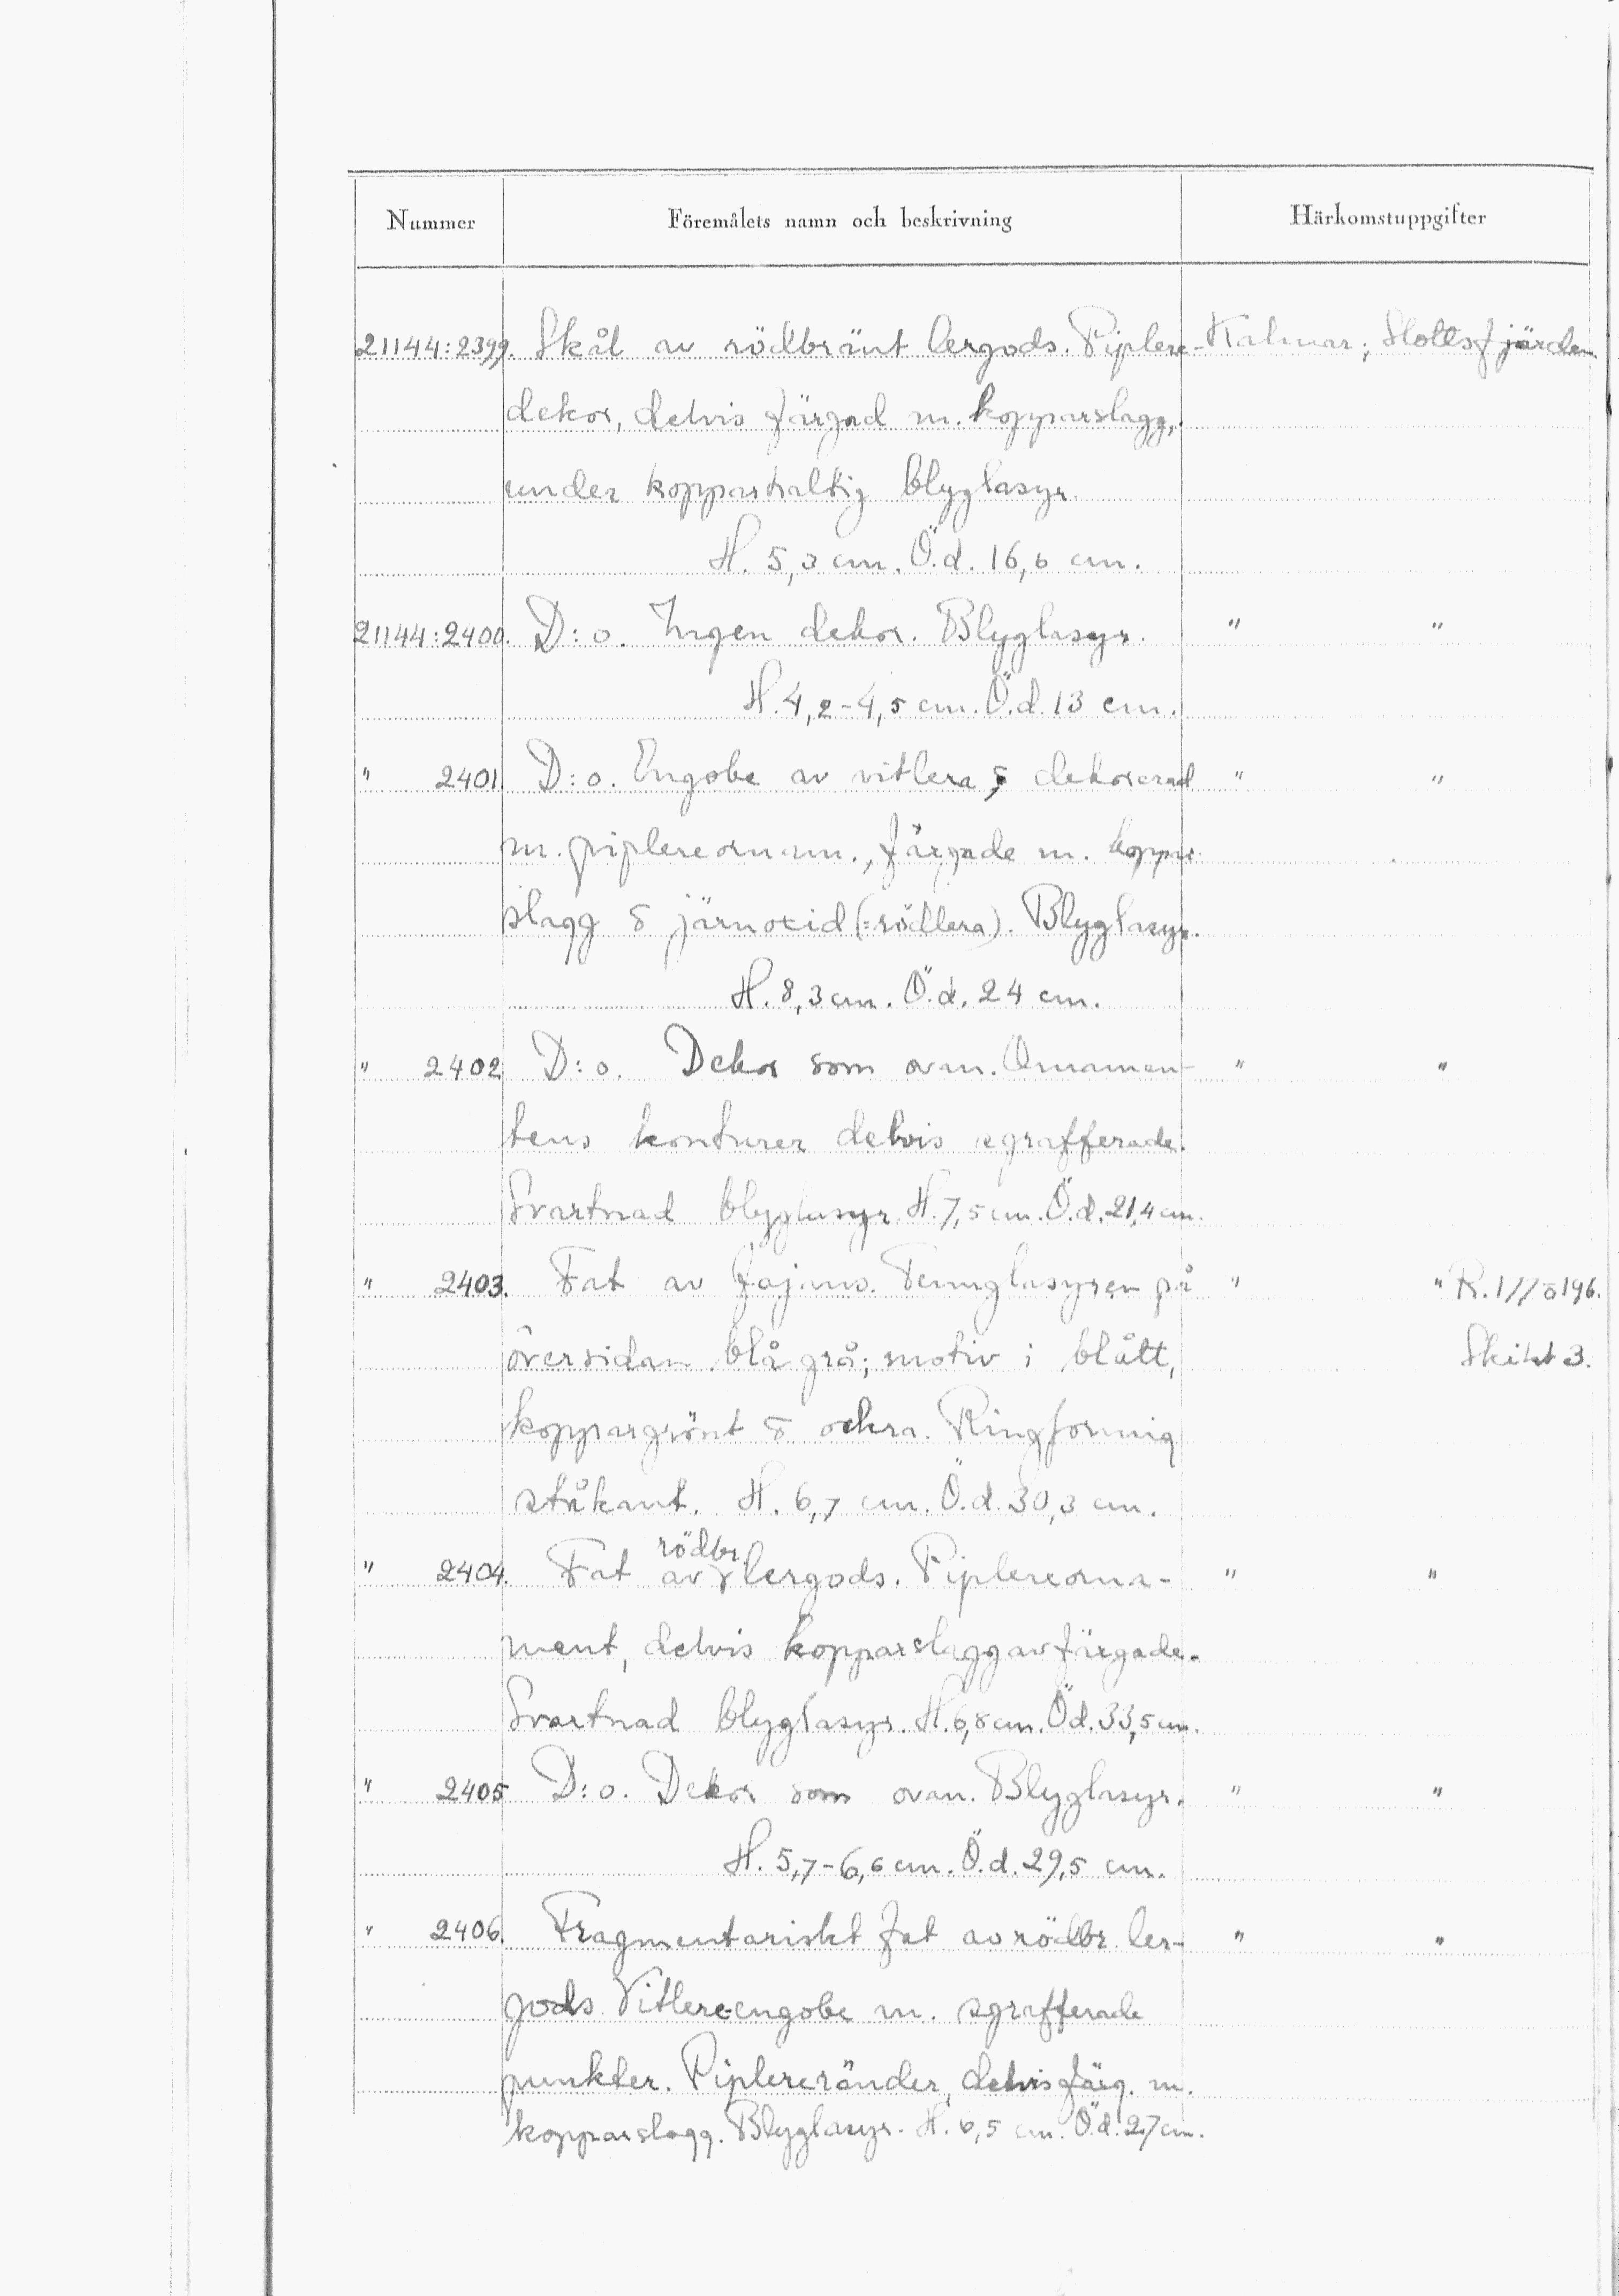 Nummer Föremålets namn och beskrivning Härkomstuppgifter
21144:2399. Skål av rödbränt lergods. Piplere- Kalmar; Slottsfjärden
dekor, delvis färgad m. kopparslagg,
under kopparhaltig blyglasyr.
H. 5,3 cm. Ö.d. 16,6 cm.
21144:2400. D:o. Ingen dekor. Blyglasyr. " "
H. 4,2-4,5 cm. Ö.d. 13 cm.
" 2401 D:o. Engobe av vitlera, dekorerad " "
m. piplereornam., färgade m. koppar
slagg & järnoxid (=rödlera). Blyglasyr.
H. 8,3 cm. Ö.d. 24 cm.
" 2402 D:o. Dekor som ovan. Ornamen- " "
tens konturer delvis sgrafferade.
Svartnad blyglasyr. H. 7,5 cm. Ö.d. 21,4 cm.
" 2403. Fat av fajans. Tennglasyren på " " R. 1//ö196.
översidan blågrå; motiv i blått, Skikt 3.
koppargrönt & ockra. Ringformig
ståkant. H. 6,7 cm. Ö.d. 30,3 cm.
" 2404. Fat av rödbr. lergods. Piplereorna- " "
ment, delvis kopparslaggavfärgade.
Svartnad blyglasyr. H. 6,8 cm. Ö.d. 33,5 cm.
" 2405 D:o. Dekor som ovan. Blyglasyr. " "
H. 5,7-6,6 cm. Ö.d. 29,5 cm.
" 2406. Fragmentariskt fat av rödbr. ler- " "
gods. Vitlereengobe m. sgrafferade
punkter. Piplereränder, delvis färg. m.
kopparslagg. Blyglasyr. H. 6,5 cm. Ö.d. 27 cm.